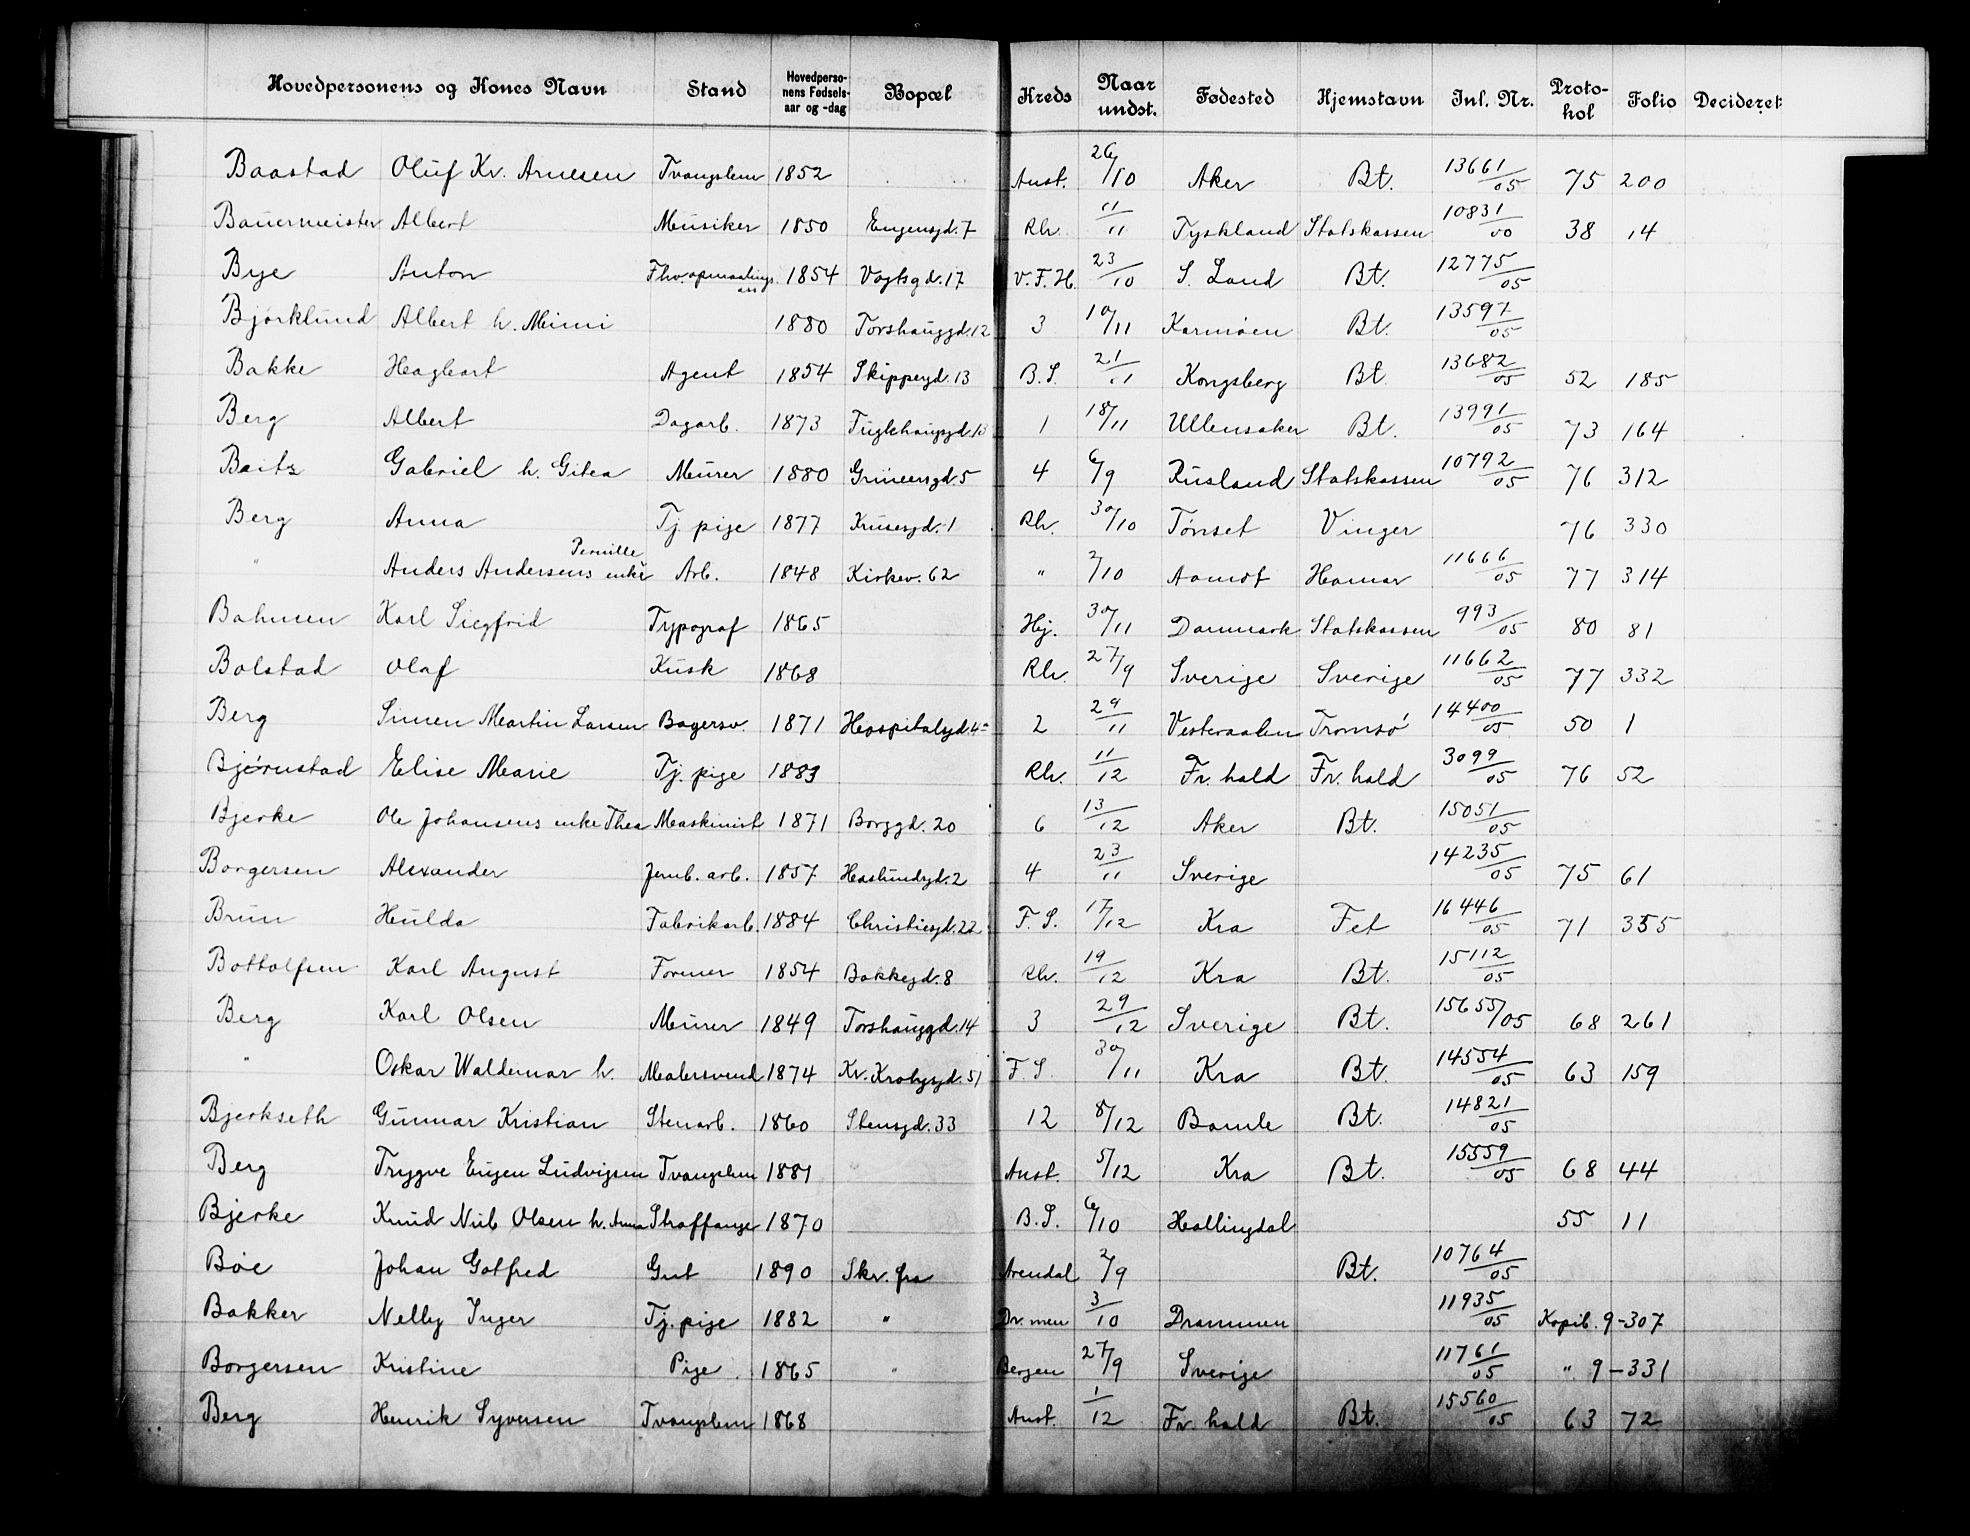 Hovedpersonens og Kones Navn Stand Hovedpersonens Fødselsaar og -dag Bopæl Kreds Naar undst. Fødested Hjemstavn Inl. Nr. Protokol Folio Decideret
Baastad Oluf Kr. Arnesen Tvangslem 1852 Anst. 26/10 Aker Bt. 13661/05 75 200
Bauermeister Albert Musiker 1850 Eugensgd. 7 Rh. 11/11 Tyskland Statskassen 10831/00 38 14
Bye Anton Fhv. opmaalings ass 1854 Vogtsgd. 17 V. F. H. 23/10 S. Land Bt. 12775/05
Bjørklund Albert h. Mimi 1880 Torshauggd. 12 3 10/11 Karmøen Bt. 13597/05
Bakke Hagbart Agent 1854 Skippergd. 13 B. S. 21/11 Kongsberg Bt. 13682/05 52 185
Berg Albert Dagarb. 1873 Fuglehauggd. 1 18/11 Ullensaker Bt. 13991/05 73 164
Baitz Gabriel h. Gitea Murer 1880 Grünersgd. 5 4 6/9 Rusland Statskassen 10792/05 76 312
Berg Anna Tj. pige 1877 Krusesgd. 1 Rh. 30/10 Tønset Vinger 76 330
" Anders Andersens enke Pernille Arb. 1848 Kirkev. 62 " 2/10 Aamot Hamar 11666/05 77 314
Bahnsen Karl Siegfrid Typograf 1865 Hj. 30/11 Danmark Statskassen 993/05 80 81
Bolstad Olaf Kusk 1868 Rh. 27/9 Sverige Sverige 11662/05 77 332
Berg Simen Martin Larsen Bagersv. 1871 Hospitalgd. 4 2 29/11 Vesteraalen Tromsø 14400/05 50 1
Bjørnstad Elise Marie Tj. pige 1883 Rh. 11/12 Fr. hald Fr. hald 3099/05 76 52
Bjerke Ole Johansens enke Thea Maskinist 1871 Borggd. 20 6 13/12 Aker Bt. 15051/05
Borgersen Alexander Jernb. arb. 1857 Haslundsgd. 2 4 23/11 Sverige 14235/05 75 61
Brun Hulda Fabrikarb. 1884 Christiesgd. 22 F. S. 17/12 Kra Fet 16446/05 71 355
Bottolfsen Karl August Former 1854 Bakkegd. 8 Rh. 19/12 Kra Bt. 15112/05
Berg Karl Olsen Murer 1849 Torshauggd. 14 3 29/12 Sverige Bt. 15655/05 68 261
" Oskar Waldemar h. Malersvend 1874 Kr. Krohgsgd. 51 F. S. 30/11 Kra Bt. 14554/05 63 159
Bjerkseth Gunnar Kristian Stenarb. 1860 Stensgd. 33 12 8/12 Bamle Bt. 14821/05
Berg Trygve Eugen Ludvigsen Tvangslem 1881 Anst. 5/12 Kra Bt. 15559/05 68 44
Bjerke Knud Nub Olsen h. Anna Straffange 1870 B. S. 6/10 Hallingdal 55 11
Bøe Johan Gotfred Gut 1890 Skr. fra Arendal 2/9 Bt. 10764/05
Bakker Nelly Inger Tj. pige 1882 " Dr. men 3/10 Drammen 11935/05 Kopib. 9-307
Borgersen Kristine Pige 1865 " Bergen 27/9 Sverige 11761/05 " 9-331
Berg Henrik Syversen Tvangslem 1868 Anst. 1/12 Fr. hald Bt. 15560/05 63 72